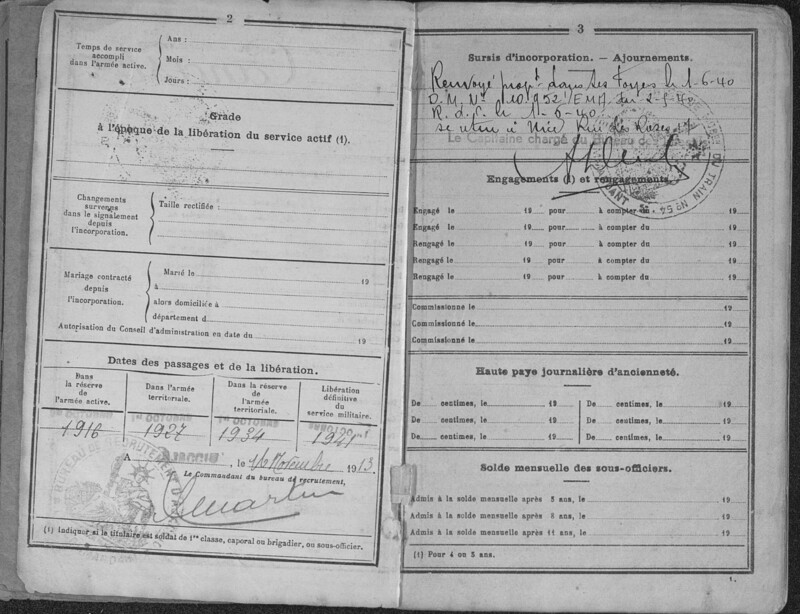 2
Temps de service accompli dans l'armée active.
Ans :
Mois :
Jours :
Grade
à l'époque de la libération du service actif (1).
Changements survenus dans le signalement depuis l'incorporation.
Taille rectifiée :
Mariage contracté depuis l'incorporation.
Marié le 19
à
alors domiciliée à
département d
Autorisation du Conseil d'administration en date du 19
Dates des passages et de la libération.
Dans la réserve de l'armée active.
Dans l'armée territoriale.
Dans la réserve de l'armée territoriale.
Libération définitive du service militaire.
1916 1927 1934 1941
A , le 16 Novembre 1913.
Le Commandant du bureau de recrutement,
(1) Indiquer si le titulaire est soldat de 1re classe, caporal ou brigadier, ou sous-officier.
3
Sursis d'incorporation. — Ajournements.
Renvoyé dans ses Foyers le 1-6-40
D.M. No 10.952/EMA du
R.d.C. le 1-6-40
se retire à Nice Rue des Roses 17
Le Capitaine chargé du Bureau
DU TRAIN No 54
Engagements (1) et rengagements.
Engagé le 19 pour à compter du 19
Engagé le 19 pour à compter du 19
Rengagé le 19 pour à compter du 19
Rengagé le 19 pour à compter du 19
Rengagé le 19 pour à compter du 19
Commissionné le 19
Commissionné le 19
Commissionné le 19
Haute paye journalière d'ancienneté.
De centimes, le 19 De centimes, le 19
De centimes, le 19 De centimes, le 19
De centimes, le 19 De centimes, le 19
Solde mensuelle des sous-officiers.
Admis à la solde mensuelle après 5 ans, le 19
Admis à la solde mensuelle après 8 ans, le 19
Admis à la solde mensuelle après 11 ans, le 19
(1) Pour 4 ou 5 ans.
1.